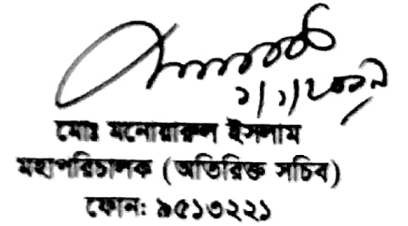 মোঃ মনোয়ারুল ইসলাম
মহাপরিচালক (অতিরিক্ত সচিব)
ফোন: ৯৫১৩২২১